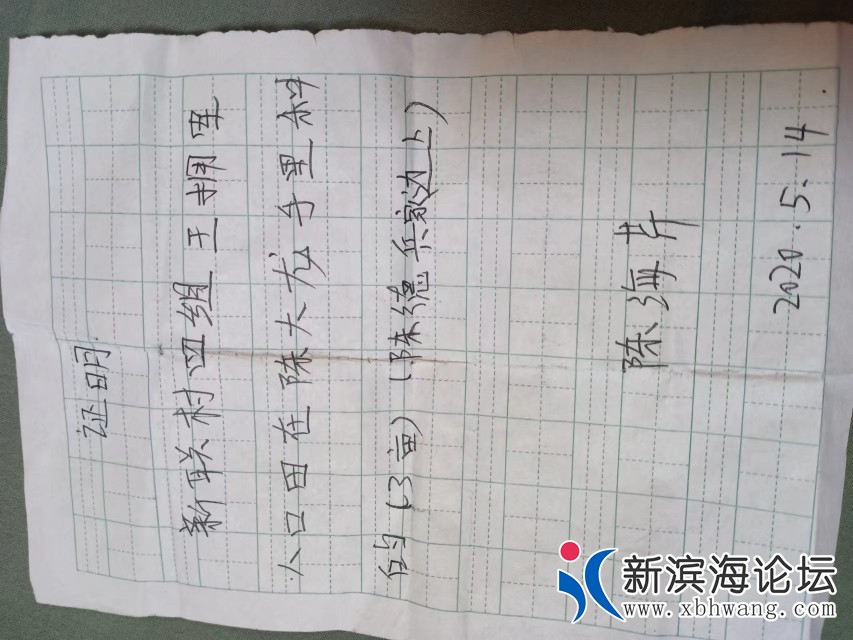 证明
新联村四组 王拥军
人口田在陈大龙手里种
的(3亩)(陈德兵家边上)
陈海兵
2020.5.14
新滨海论坛
www.xbhwang.com